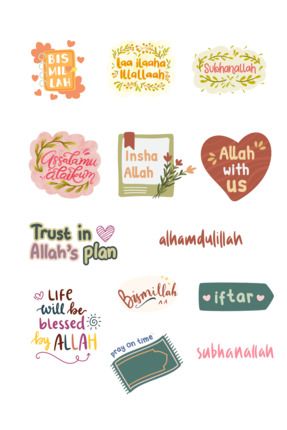 BIS
MIL
LAH
Laa ilaaha
Illallaah
Subhanallah
Assalamu
alaikum
Insha
Allah
Allah
with
us
Trust in
Allah's plan
alhamdulillah
LIFE
will be
blessed
by ALLAH
Bismillah
iftar
pray on time
subhanallah